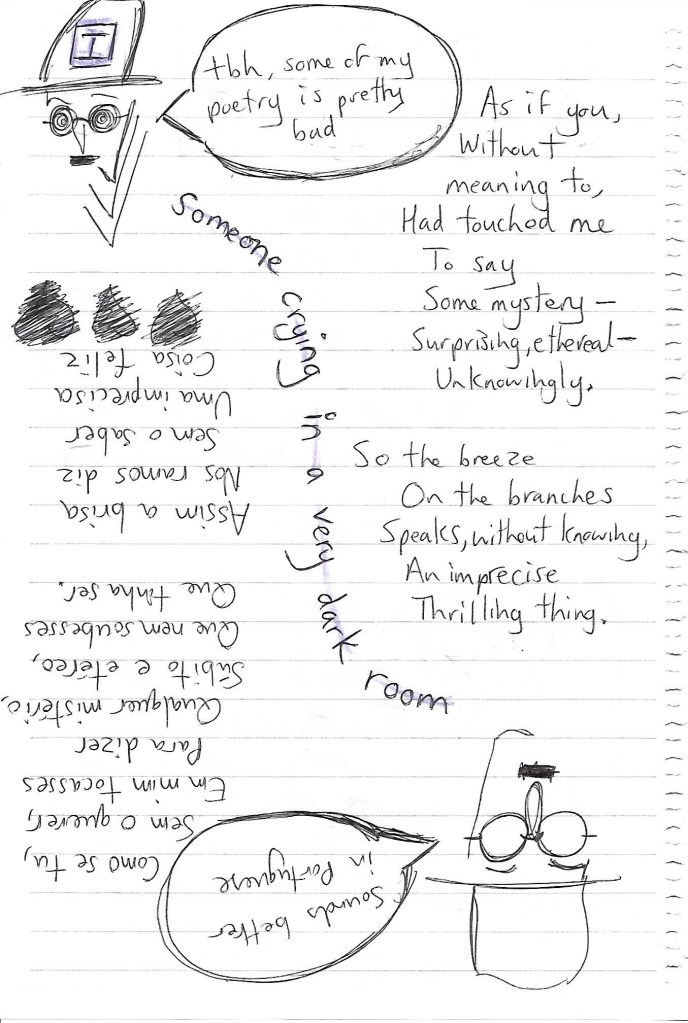 I
tbh, some of my
poetry is pretty
bad
As if you,
Without
meaning to,
Had touched me
To say
Some mystery –
Surprising, ethereal –
Unknowingly.
So the breeze
On the branches
Speaks, without knowing,
An imprecise
Thrilling thing.
Someone crying in a very dark room
Sounds better
in Portuguese
Como se tu,
Sem o querer,
Em mim tocasses
Para dizer
Qualquer mistério,
Súbito e etéreo,
Que nem soubesses
Que tinha ser.
Assim a brisa
Nos ramos diz
Sem o saber
Uma imprecisa
Coisa feliz